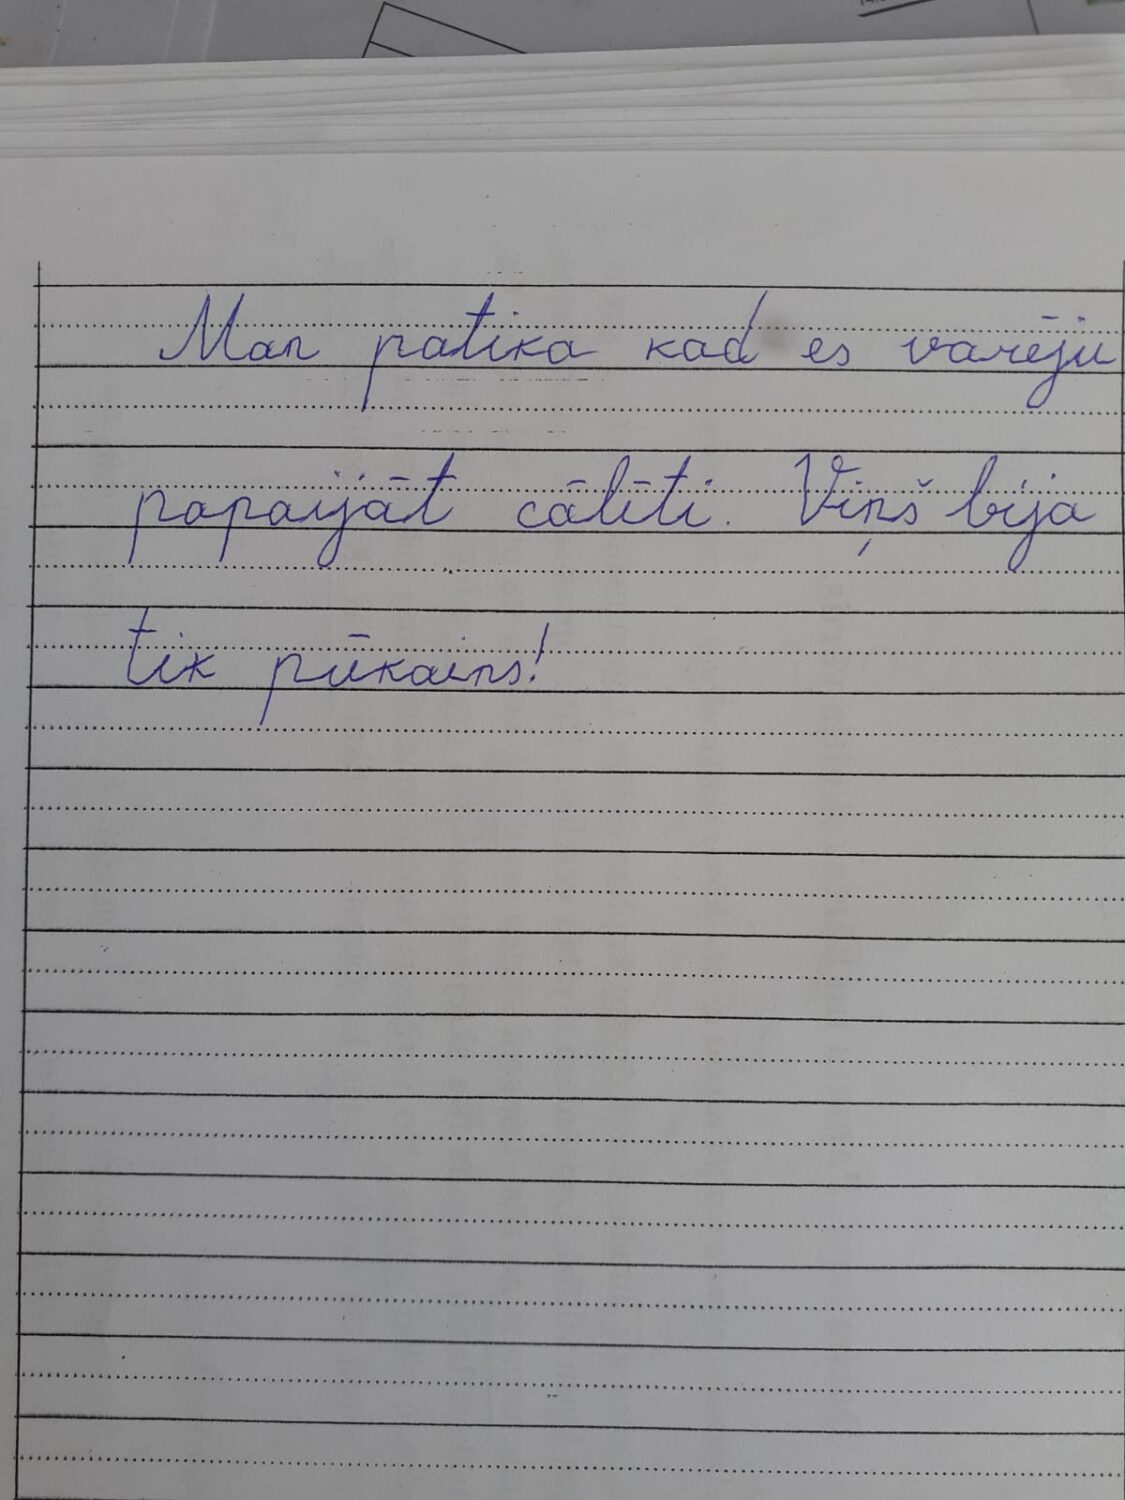 Man patika kad es varēju
papaijāt cālīti. Viņš bija
tik pūkains!